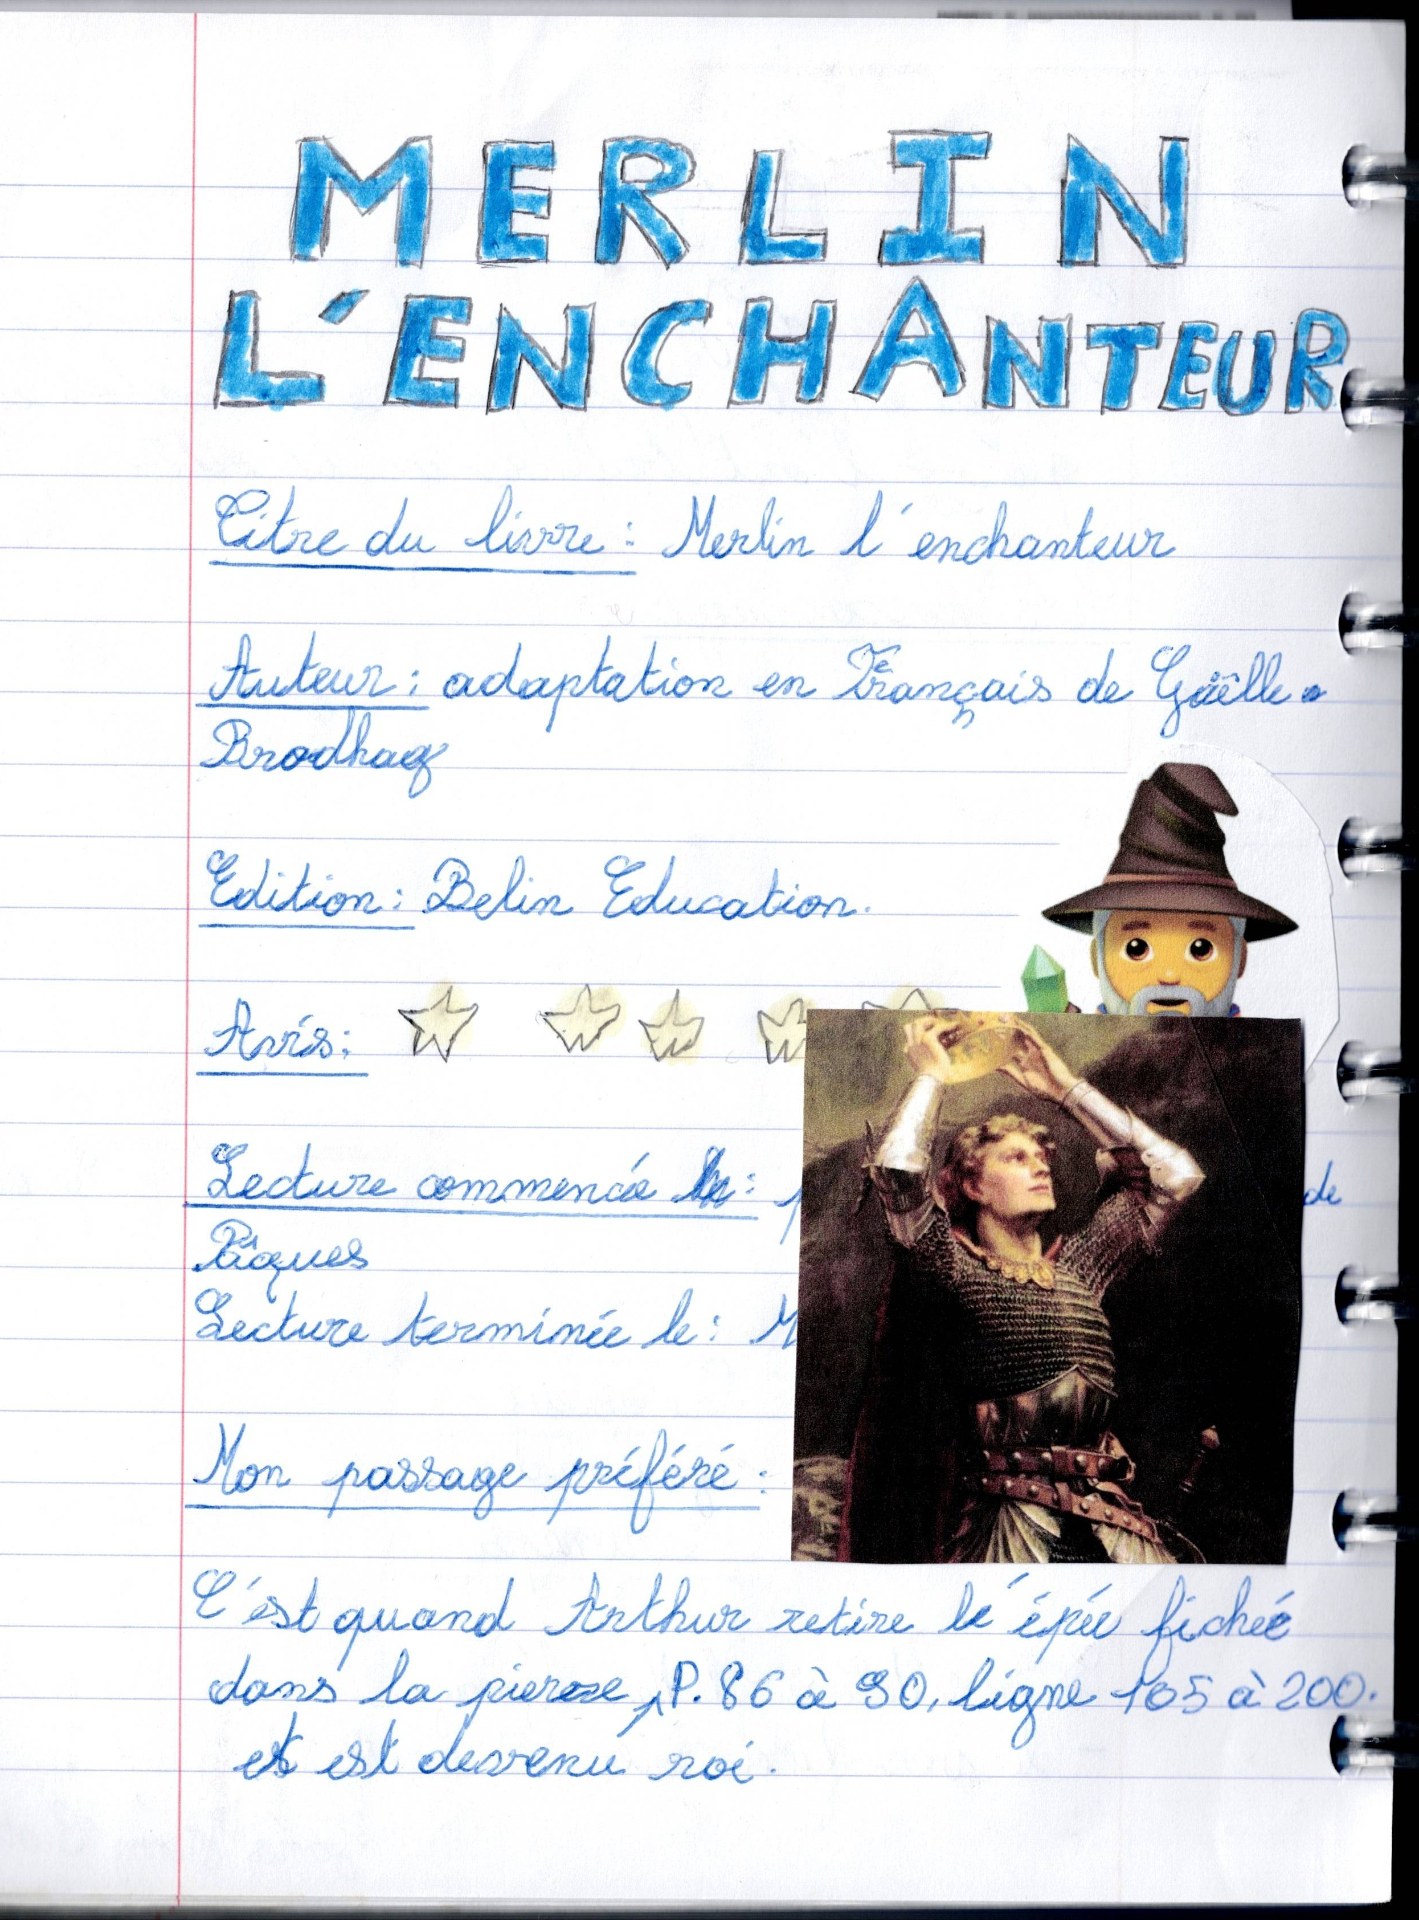 MERLIN
L'ENCHANTEUR
Titre du livre : Merlin l'enchanteur
Auteur : adaptation en Français de Gaëlle
Brodhag
Edition : Belin Education.
Avis :
Lecture commencée le : p de
Pâques
Lecture terminée le : M
Mon passage préféré :
C'est quand Arthur retire l'épée fichée
dans la pierre, P. 86 à 90, ligne 165 à 200.
et est devenu roi.